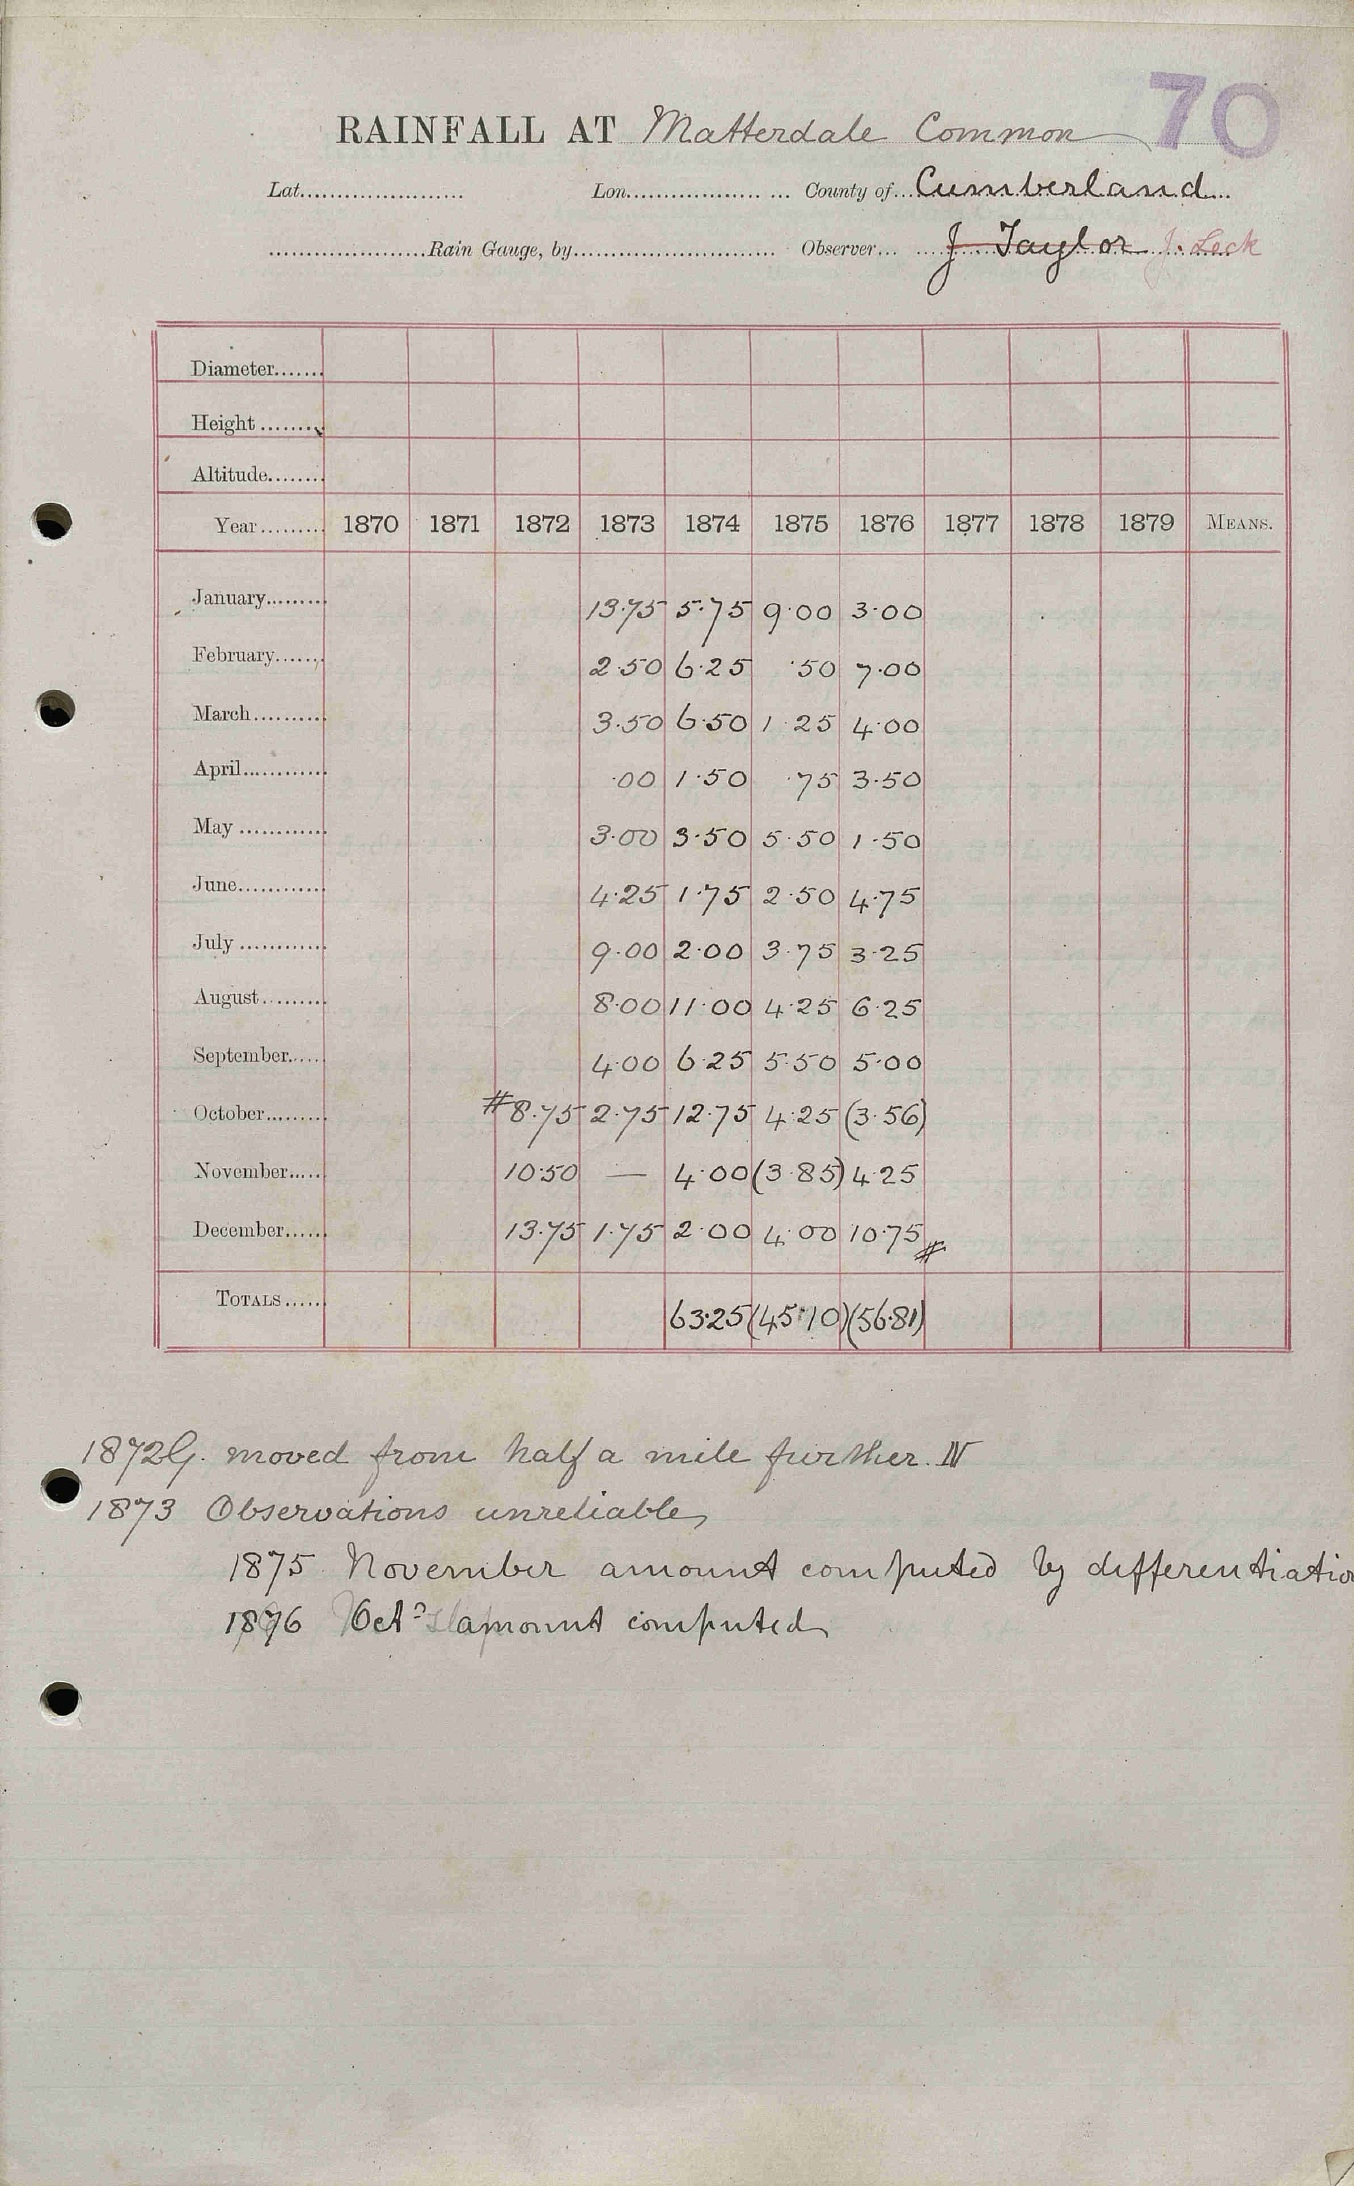 70
RAINFALL AT Matterdale Common
Lat...................... Lon.................. ... County of...Cumberland...
.....................Rain Gauge, by........................... Observer... J Taylor J. Leck
Diameter.......
Height ........
Altitude........
Year......... 1870 1871 1872 1873 1874 1875 1876 1877 1878 1879 MEANS.
January......... 13.75 5.75 9.00 3.00
February....... 2.50 6.25 .50 7.00
March.......... 3.50 6.50 1.25 4.00
April............ .00 1.50 .75 3.50
May ............ 3.00 3.50 5.50 1.50
June............ 4.25 1.75 2.50 4.75
July ............ 9.00 2.00 3.75 3.25
August......... 8.00 11.00 4.25 6.25
September..... 4.00 6.25 5.50 5.00
October........ #8.75 2.75 12.75 4.25 (3.56)
November..... 10.50 — 4.00 (3.85) 4.25
December...... 13.75 1.75 2.00 4.00 10.75#
TOTALS ...... 63.25 (45.10) (56.81)
1872 G. moved from half a mile further N
1873 Observations unreliable
1875 November amount computed by differentiatio
1876 Octr amount computed